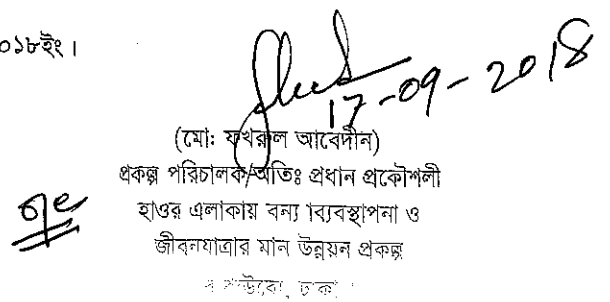 ০১৮ইং।
17-09-2018
(মোঃ ফখরুল আবেদীন)
প্রকল্প পরিচালক/অতিঃ প্রধান প্রকৌশলী
হাওর এলাকায় বন্যা ব্যবস্থাপনা ও
জীবনযাত্রার মান উন্নয়ন প্রকল্প
ঢাকা।